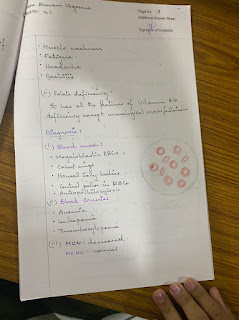 Bhavani
Page No:
Additional Answer Sheet
Signature of Invigilator
• Muscle weakness
• Fatigue
• Headache
• Gastritis
(ii) Folate deficiency:
It has all the features of Vitamin B12
deficiency except neurological manifestation
Diagnosis:
(i) Blood smear:
• Megaloblastic RBCs
• Cabot rings
• Howell Jolly bodies
• Central pallor in RBCs
• Anisopoikilocytosis
(ii) Blood Counts:
• Anemia
• Leukopenia
• Thrombocytopenia
(iii) MCV - decreased
MCHC - normal